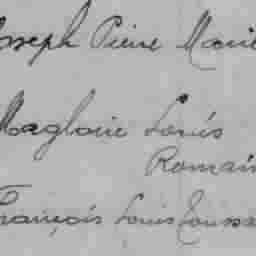 Joseph Pierre Marie
Magloire Louis
Romain
François Louis Toussa